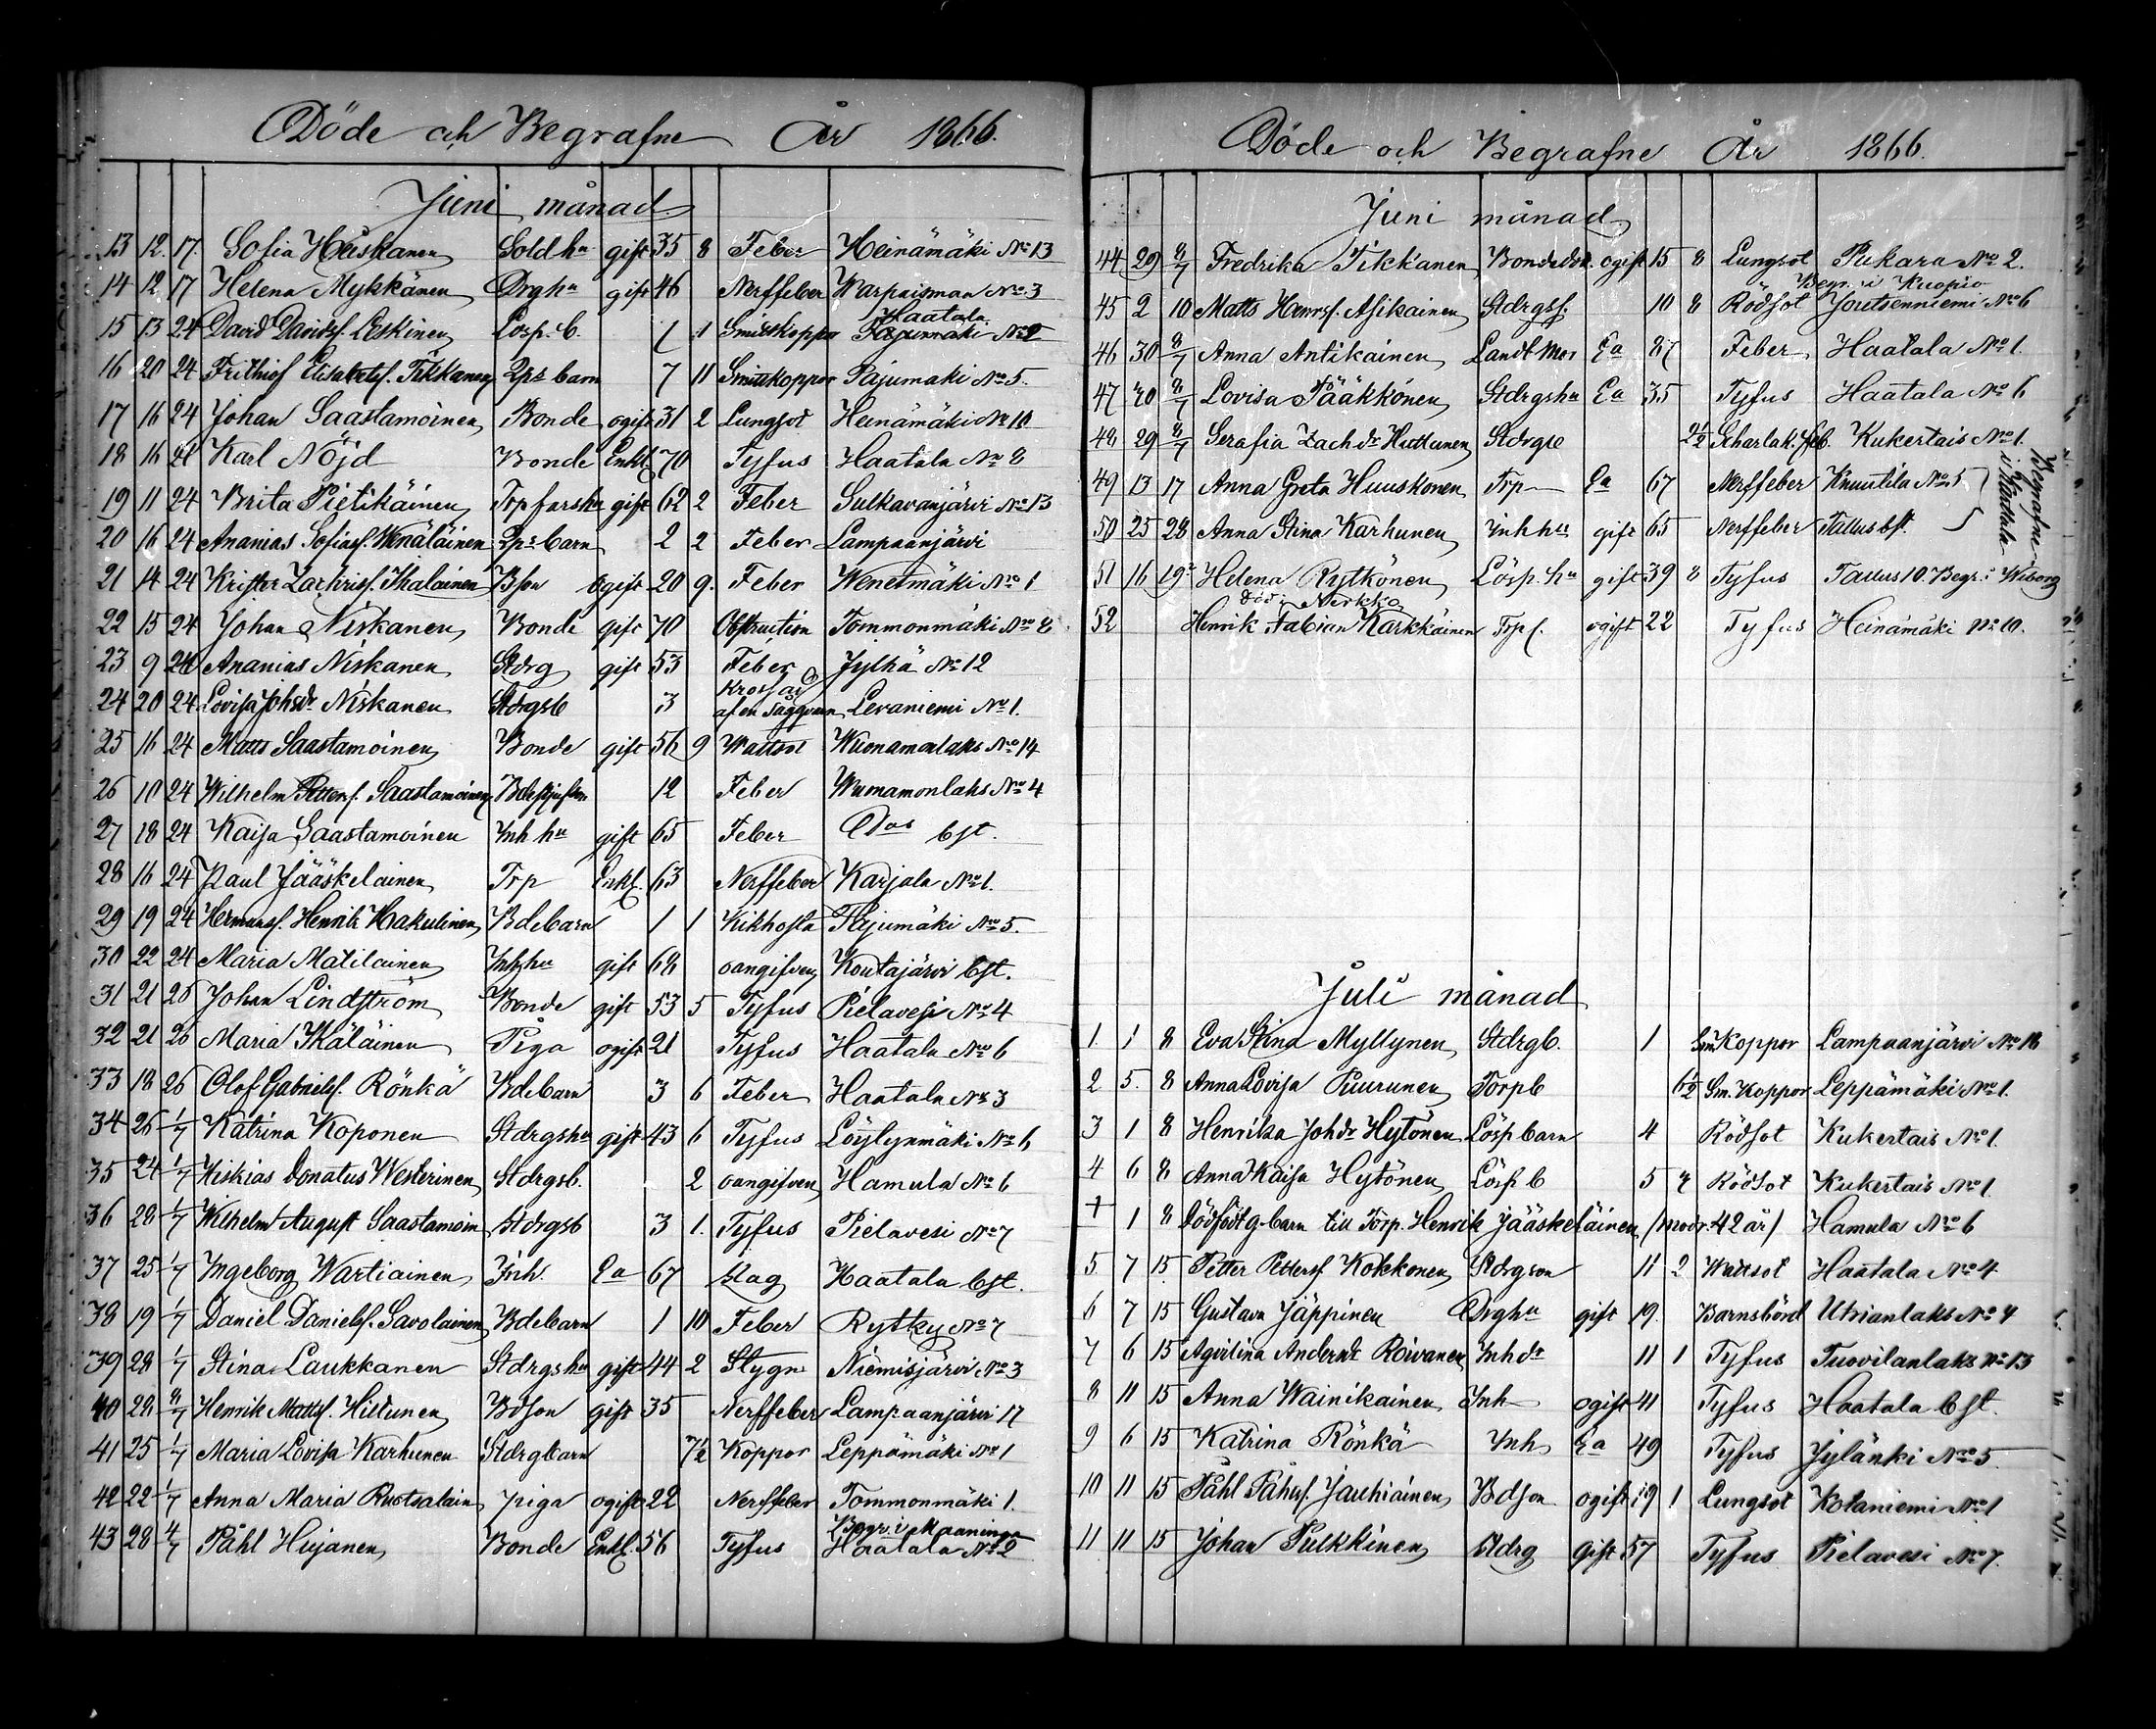 Döde och Begrafne År 1866.
Juni månad
13 12. 17. Sofia Huuskanen Sold hu gift 35 8 Feber Heinämäki No 13
14 12 17 Helena Mykkänen Drghu gift 46 Nerffeber Warpaisman No 3
15 13 24 David Davidsf. Leskinen Lösp. b. 1 1 Smittkoppor Haatala Pajumäki No 2
16 20 24 Frithiof Elisabetsf. Tikkanen Qps barn 7 11 Smittkoppor Pajumaki No 5.
17 16 24 Johan Saastamoinen Bonde ogift 31 2 Lungsot Heinämäki No 10
18 16 24 Karl Nöjd Bonde Enkl 70 Tyfus Haatala No 8
19 11 24 Brita Pietikäinen Torpfarshu gift 62 2 Feber Sulkavanjärvi No 13
20 16 24 Ananias Sofiasf. Wenäläinen Qps barn 2 2 Feber Lampaanjärvi
21 14 24 Krister Zachrisf. Ihalainen Bson ogift 20 9. Feber Wenetmäki No 1
22 15 24 Johan Niskanen Bonde gift 70 Obstruction Tommonmäki No 8
23 9 24 Ananias Niskanen Stdrg gift 53 Feber Jylhä No 12
24 20 24 Lovisa Johsdr Niskanen Stdrgsb 3 Krossad af en Säggvarn Levaniemi No 1.
25 16 24 Matts Saastamoinen Bonde gift 56 9 Wattsot Wuonamonlaks No 14
26 10 24 Wilhelm Pettersf. Saastamoinen 12 Feber Wuonamonlaks No 4
27 18 24 Kaisa Saastamoinen Inh hu gift 65 Feber Dos bst.
28 16 24 Paul Jääskelainen Trp Enkl. 63 Nerffeber Karjala No 1.
29 19 24 Hermansf. Henrik Hakulinen Bdebarn 1 1 Kikhosta Pajumäki No 5.
30 22 24 Maria Matilainen Inhhu gift 68 oangifven Koutajärvi bst.
31 21 26 Johan Lindström Bonde gift 53 5 Tyfus Pielavesi No 4
32 21 26 Maria Ikäläinen Piga ogift 21 Tyfus Haatala No 6
33 18 26 Olof Gabrielsf. Rönkä Bdebarn 3 6 Feber Haatala No 3
34 26 1/7 Katrina Koponen Stdrgshu gift 43 6 Tyfus Löylynmäki No 6
35 24 1/7 Hiskias Donatus Westerinen Stdrgsb. 2 oangifven Hamula No 6
36 28 1/7 Wilhelm August Saastamoin Stdrgsb 3 1. Tyfus Pielavesi No 7
37 25 1/7 Ingeborg Wartiainen Inh. Ea 67 Slag Haatala bst.
38 19 1/7 Daniel Danielsf. Savolainen Bdebarn 1 10 Feber Rytky No 7
39 28 1/7 Stina Laukkanen Stdrgshu gift 44 2 Stygn Niemisjärvi No 3
40 28 8/7 Henrik Mattsf. Hiltunen Bdson gift 35 Nerffeber Lampaanjärvi 17
41 25 1/7 Maria Lovisa Karhunen Stdrgbarn 7/2 Koppor Leppämäki No 1
42 22 1/7 Anna Maria Ruotsalain piga ogift 22 Nerffeber Tommonmäki 1.
43 28 4/7 Påhl Hujanen Bonde Enkl. 56 Tyfus Begr. i Maaninga Haatala No 2
Döde och Begrafne År 1866.
Juni månad
44 29 8/7 Fredrika Tikkanen Bondedot. ogift 15 8 Lungsot Pukara No 2.
45 2 10 Matts Henrsf. Asikainen Stdrgsf. 10 8 Rödsot Begr. i Kuopio Joutsenniemi No 6
46 30 8/7 Anna Antikainen Landtmor Ea 87 Feber Haatala No 1.
47 30 8/7 Lovisa Pääkkönen Stdrgshu Ea 35 Tyfus Haatala No 6
48 29 8/7 Serafia Zachdr Huttunen Stdrgb 2 1/2 Scharlak. feb. Kukertais No 1.
49 13 17 Anna Greta Huuskonen Trp Ea 67 Nerffeber Knuutila No 5
50 25 28 Anna Stina Karhunen Inhhu gift 65 Nerffeber Tallus bst.
Begrafne i Kiuruvesi
51 16 19 Helena Rytkönen Lösp. hu gift 39 8 Tyfus Tallus 10. Begr. i Wiborg
Död i Nerkko
52 Henrik Fabian Karkkäinen Trp f. ogift 22 Tyfus Heinämäki No 10.
Juli månad
1. 1 8 Eva Stina Myllynen Stdrgb. 1 Sm. Koppor Lampaanjärvi No 18
2 5. 8 Anna Lovisa Puurunen Torpb 6/2 Sm. Koppor Leppämäki No 1.
3 1 8 Henrika Johdr Hytönen Lösp barn 4 Rödsot Kukertais No 1.
4 6 8 Anna Kaisa Hytönen Lösp b 5 7 Rödsot Kukertais No 1
+ 1 8 Dödfödt g-barn till Torp. Henrik Jääskeläinen (modr. 42 år) Hamula No 6
5 7 15 Petter Pettersf Kokkonen Stdrgson 11 2 Wattsot Haatala No 4
6 7 15 Gustava Jäppinen Drghu gift 19. Barnsbörd Utrianlaks No 4
7 6 15 Agvilina Andersdr Roivanen Inhdr 11 1 Tyfus Tuovilanlaks No 13
8 11 15 Anna Wainikainen Inh ogift 41 Tyfus Haatala bst.
9 6 15 Katrina Rönkä Inh Ea 49 Tyfus Jylänki No 5
10 11 15 Påhl Påhlsf. Jauhiainen Bdson ogift 19 1 Lungsot Kotaniemi No 1
11 11 15 Johan Pulkkinen Stdrg gift 57 Tyfus Pielavesi No 7.